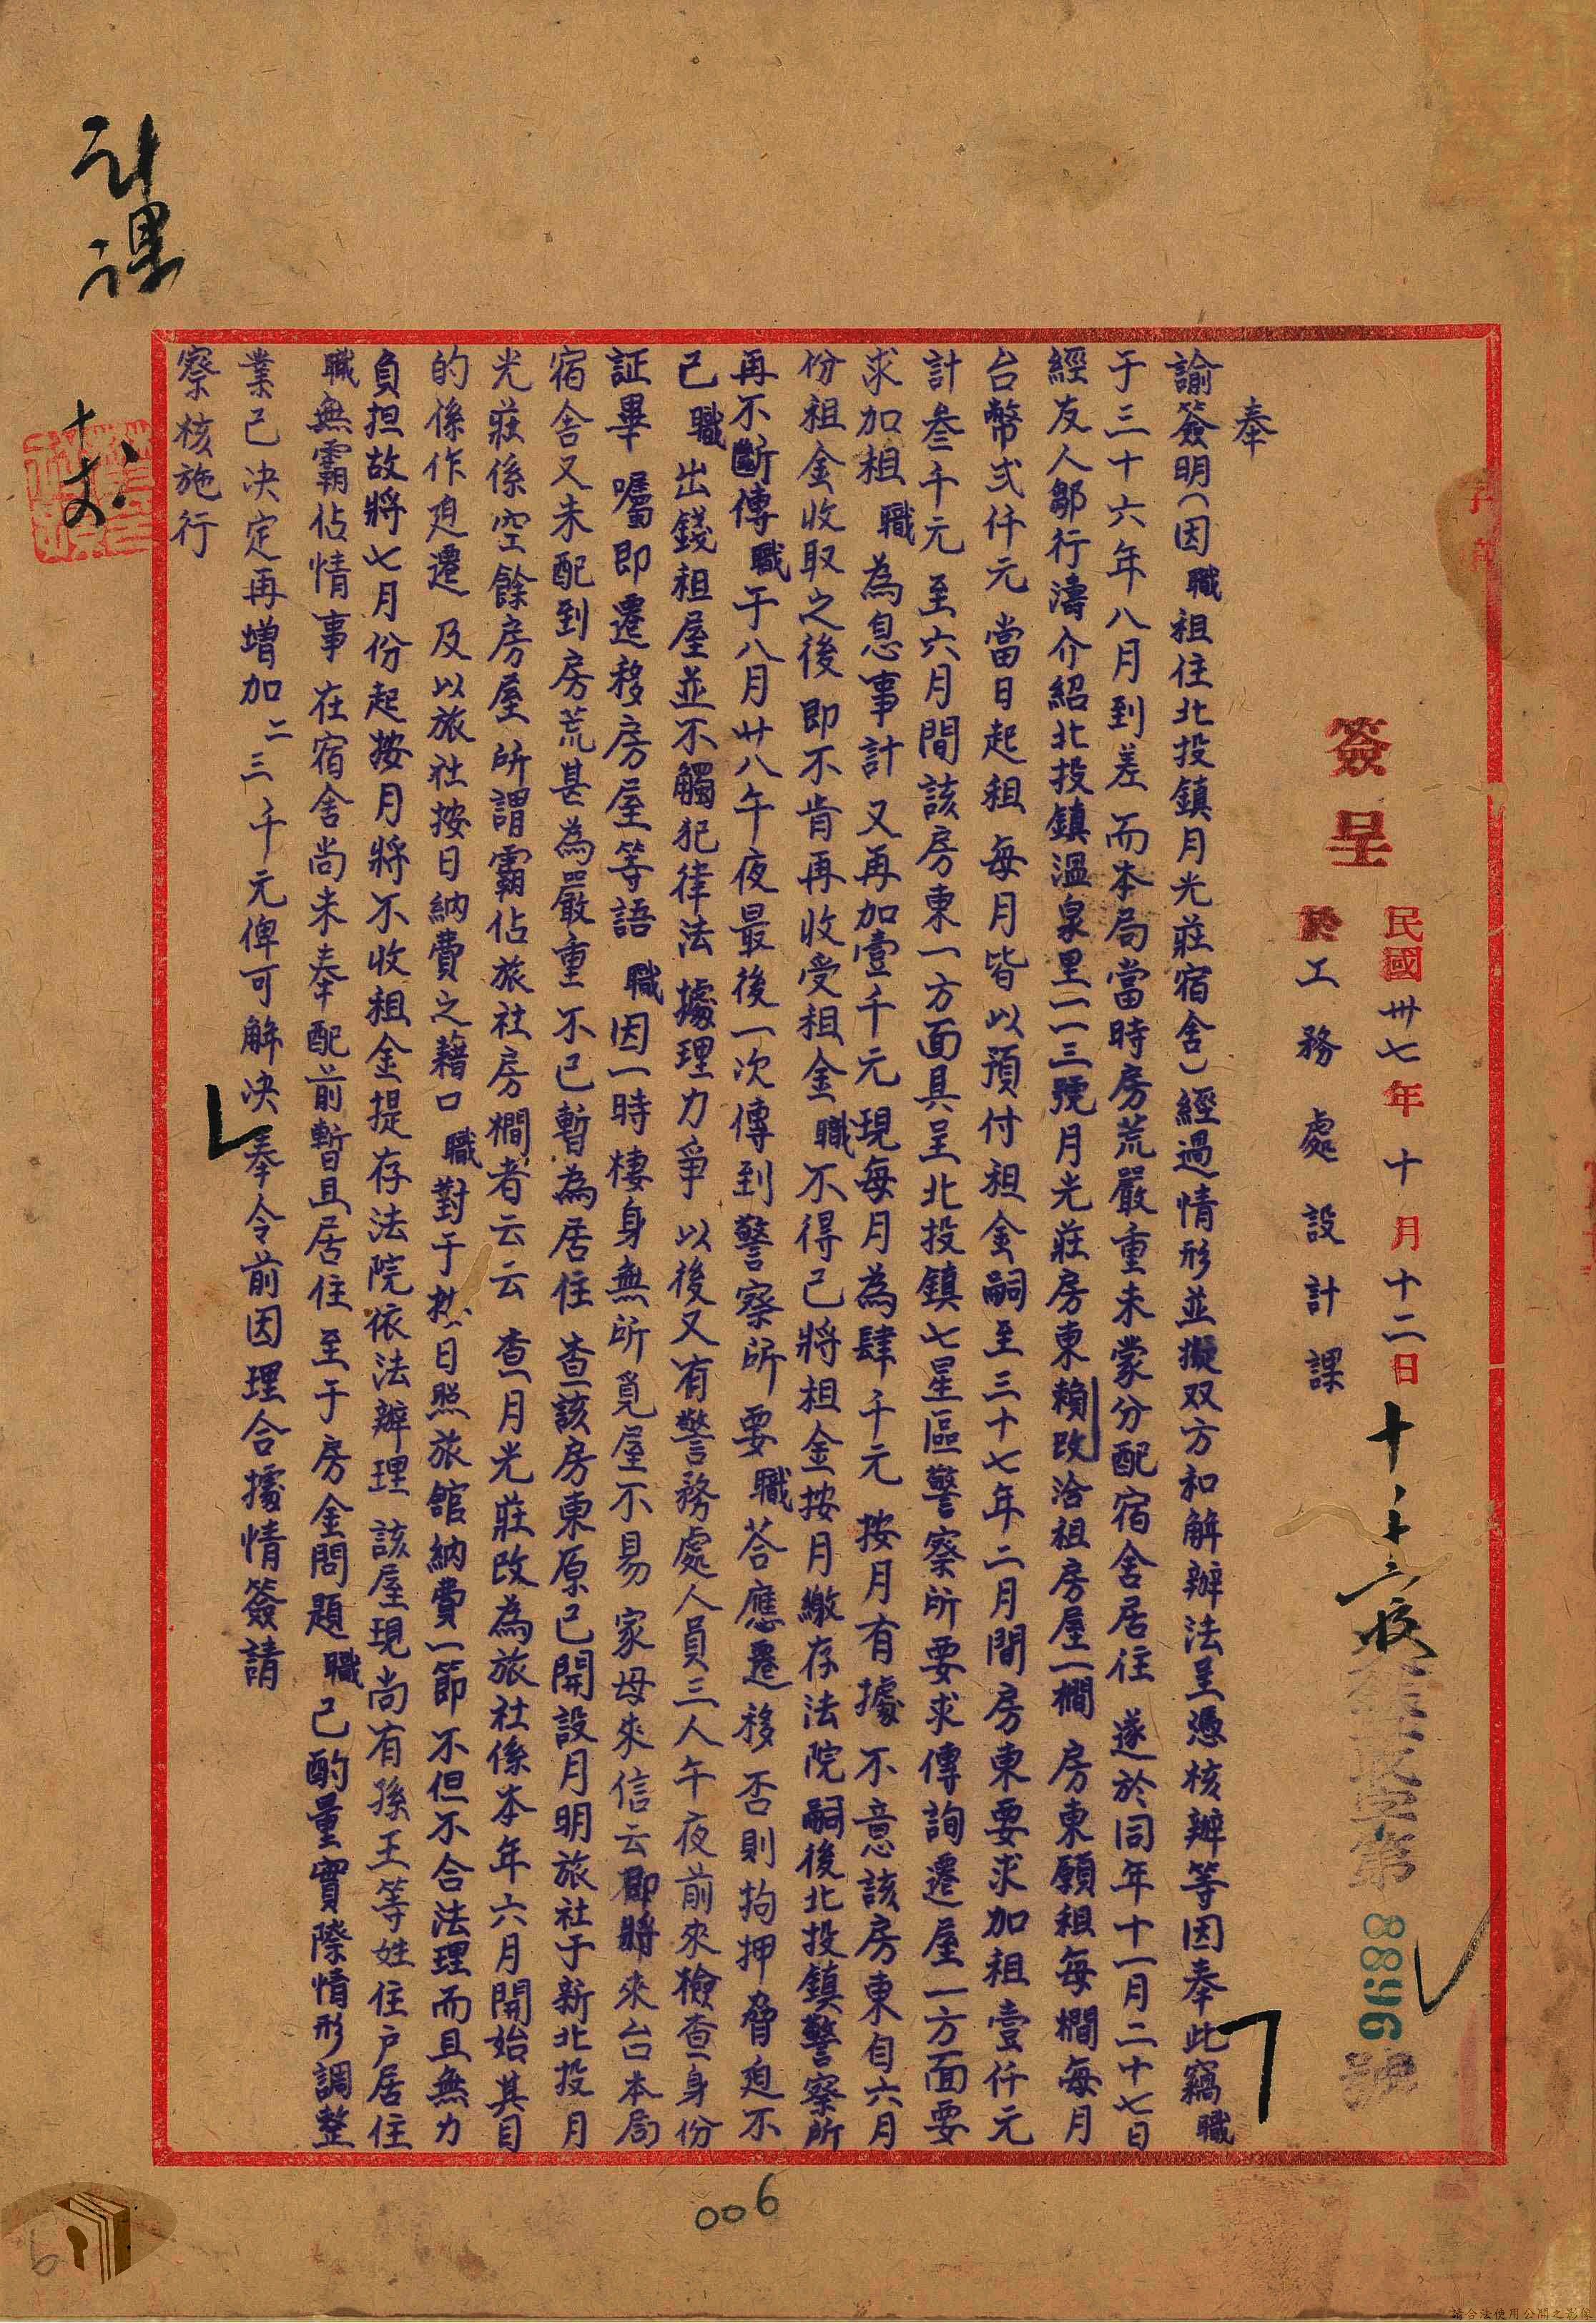 簽呈
民國卅七年十月十二日
於工務處設計課
第8896號
奉
諭簽明(因職租住北投鎮月光莊宿舍)經過情形並擬双方和解辦法呈憑核辦等因奉此竊職
于三十六年八月到差而本局當時房荒嚴重未蒙分配宿舍居住遂於同年十一月二十七日
經友人鄒行濤介紹北投鎮溫泉里一一三號月光莊房東賴改洽租房屋一橺房東願租每橺每月
台幣弍仟元當日起租每月皆以預付租金嗣至三十七年二月間房東要求加租壹仟元
計叁千元至六月間該房東一方面具呈北投鎮七星區警察所要求傳詢遷屋一方面要
求加租職為息事計又再加壹千元現每月為肆千元按月有據不意該房東自六月
份租金收取之後即不肯再收受租金職不得已將租金按月繳存法院嗣後北投鎮警察所
再不斷傳職于八月廿八午夜最後一次傳到警察所要職荅應遷移否則拘押脅迫不
已職出錢租屋並不觸犯律法據理力爭以後又有警務處人員三人午夜前來檢查身份
証畢囑即遷移房屋等語職因一時棲身無所覓屋不易家母來信云即將來台本局
宿舍又未配到房荒甚為嚴重不已暫為居住查該房東原已開設月明旅社于新北投月
光莊係空餘房屋所謂霸佔旅社房橺者云云查月光莊改為旅社係本年六月開始其目
的係作迫遷及以旅社按日納費之藉口職對于按日照旅館納費一節不但不合法理而且無力
負担故將七月份起按月將不收租金提存法院依法辦理該屋現尚有孫王等姓住戶居住
職無霸佔情事在宿舍尚未奉配前暫且居住至于房金問題職已酌量實際情形調整
業已決定再增加二三千元俾可解決奉令前因理合據情簽請
察核施行
006
請合法使用公開之影像